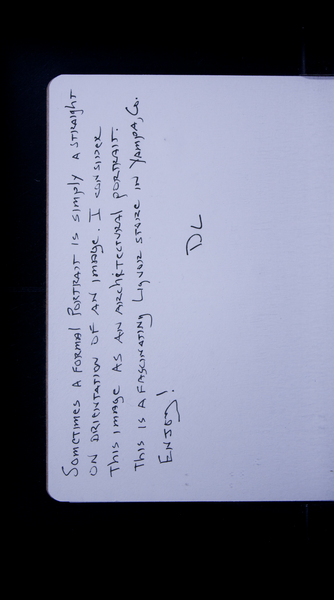 SOMETIMES A FORMAL PORTRAIT IS SIMPLY A STRAIGHT
ON ORIENTATION OF AN IMAGE. I CONSIDER
THIS IMAGE AS AN ARCHITECTURAL PORTRAIT.
THIS IS A FASCINATING LIQUOR STORE IN YAMPA, CO.
ENJOY!
DL